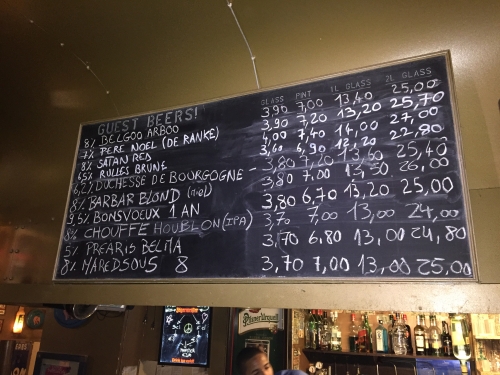 GUEST BEERS! GLASS PINT 1L GLASS 2L GLASS
8% BELGOO ARBOO 3,90 7,00 13,40 25,00
7% PERE NOEL (DE RANKE) 3,90 7,20 13,20 25,70
8% SATAN RED 4,00 7,40 14,00 27,00
6,5% RULLES BRUNE 3,60 6,90 12,20 22,80
6,2% DUCHESSE DE BOURGOGNE - 3,80 7,20 13,60 25,40
8% BARBAR BLOND (miel) 3,80 7,00 13,50 26,00
9,5% BONSVOEUX 1 AN 3,80 6,70 13,20 25,00
8% CHOUFFE HOUBLON (IPA) 3,70 7,00 13,00 24,00
5% PREARIS BELMA 3,70 6,80 13,00 24,80
8% MAREDSOUS 8 3,70 7,00 13,00 25,00
Pilsner Urquell